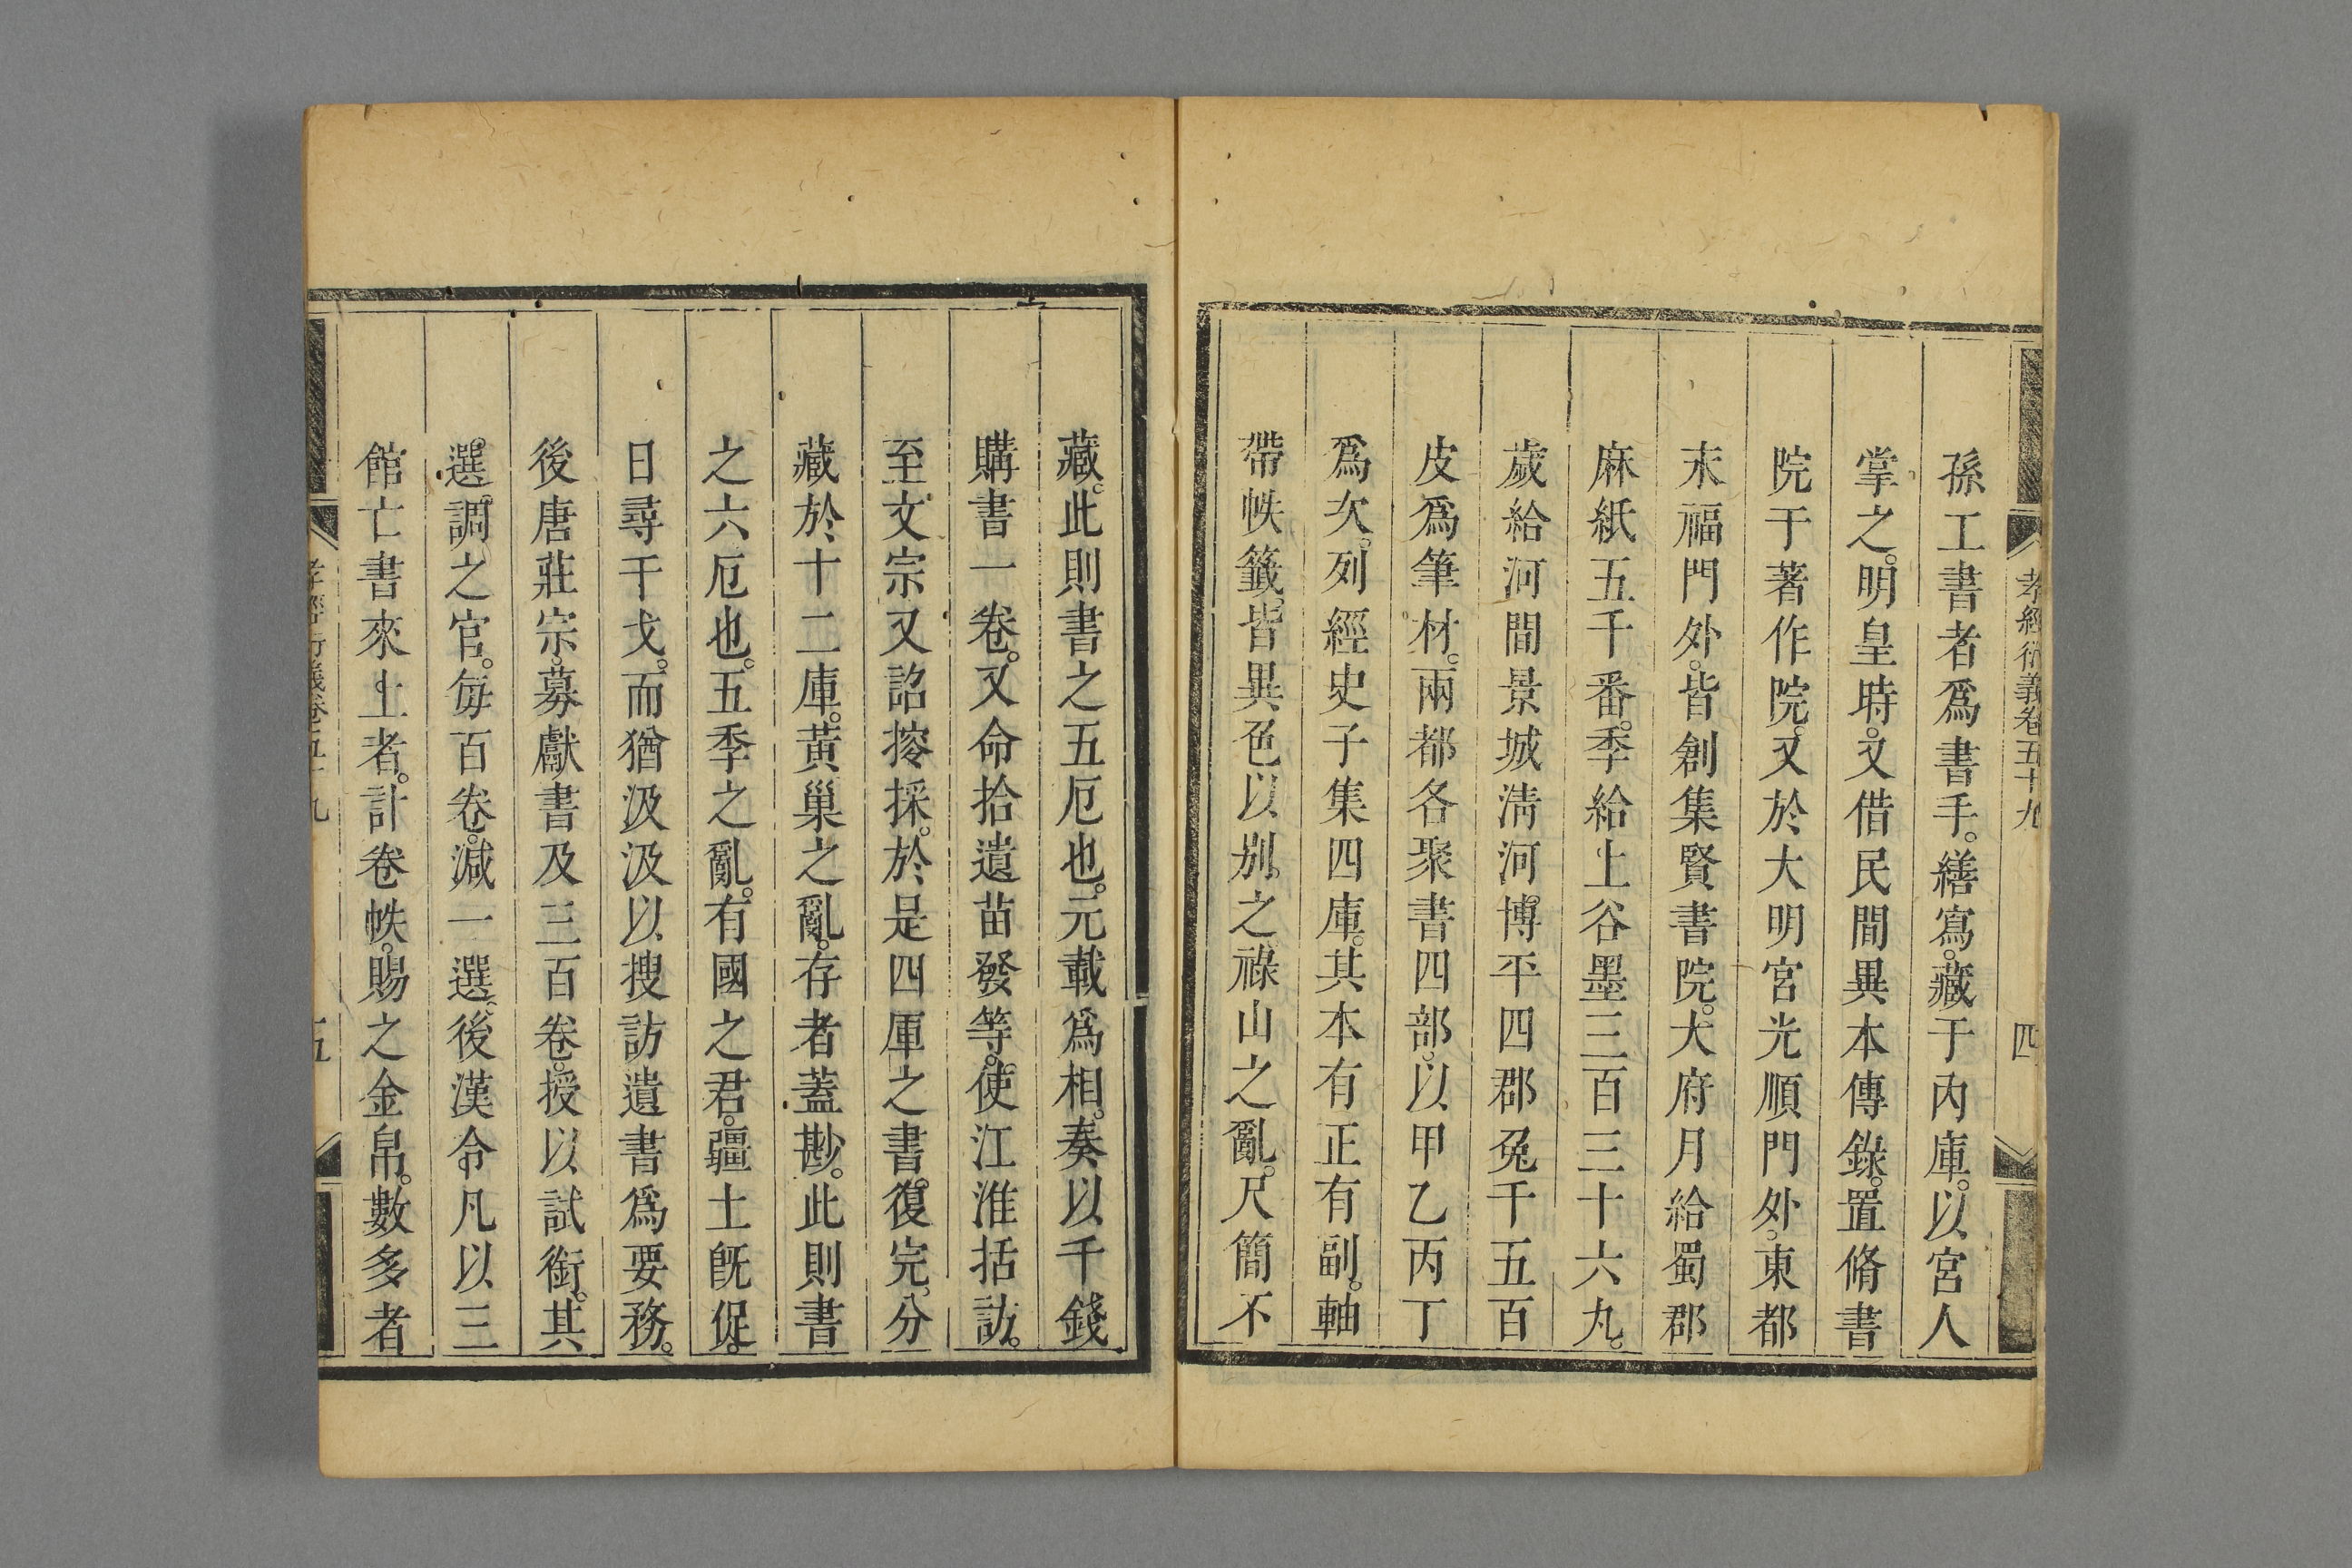 孝經衍義卷五十九 四
孫工書者爲書手。繕寫。藏于內庫。以宮人
掌之。明皇時。又借民間異本傳錄。置脩書
院于著作院。又於大明宮光順門外。東都
末福門外。皆創集賢書院。大府月給蜀郡
麻紙五千番。季給上谷墨三百三十六丸。
歲給河間景城淸河博平四郡兔千五百
皮爲筆材。兩都各聚書四部。以甲乙丙丁
爲次。列經史子集四庫。其本有正有副。軸
帶帙籤。皆異色以別之祿山之亂。尺簡不
藏。此則書之五厄也。元載爲相。奏以千錢
購書一卷。又命拾遺苗發等。使江淮括訪。
至文宗又詔搜採。於是四庫之書。復完。分
藏於十二庫。黃巢之亂。存者蓋尠。此則書
之六厄也。五季之亂。有國之君。疆土旣促。
日尋干戈。而猶汲汲以搜訪遺書爲要務。
後唐莊宗。募獻書及三百卷。授以試銜。其
選調之官。每百卷。減一選。後漢令凡以三
館亡書來上者。計卷帙。賜之金帛。數多者
孝經衍義卷五十九 五